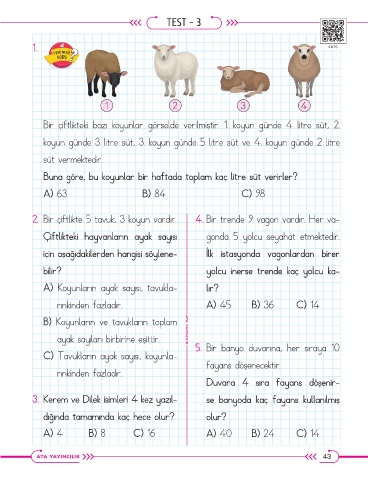 TEST - 3
1.
YENİ NESİL
SORU
1 2 3 4
Bir çiftlikteki bazı koyunlar görselde verilmiştir. 1. koyun günde 4 litre süt, 2.
koyun günde 3 litre süt, 3. koyun günde 5 litre süt ve 4. koyun günde 2 litre
süt vermektedir.
Buna göre, bu koyunlar bir haftada toplam kaç litre süt verirler?
A) 63 B) 84 C) 98
2. Bir çiftlikte 5 tavuk, 3 koyun vardır.
Çiftlikteki hayvanların ayak sayısı
için aşağıdakilerden hangisi söylene-
bilir?
A) Koyunların ayak sayısı, tavukla-
rınkinden fazladır.
B) Koyunların ve tavukların toplam
ayak sayıları birbirine eşittir.
C) Tavukların ayak sayısı, koyunla-
rınkinden fazladır.
3. Kerem ve Dilek isimleri 4 kez yazıl-
dığında tamamında kaç hece olur?
A) 4 B) 8 C) 16
4. Bir trende 9 vagon vardır. Her va-
gonda 5 yolcu seyahat etmektedir.
İlk istasyonda vagonlardan birer
yolcu inerse trende kaç yolcu ka-
lır?
A) 45 B) 36 C) 14
5. Bir banyo duvarına, her sıraya 10
fayans döşenecektir.
Duvara 4 sıra fayans döşenir-
se banyoda kaç fayans kullanılmış
olur?
A) 40 B) 24 C) 14
ATA YAYINCILIK
43